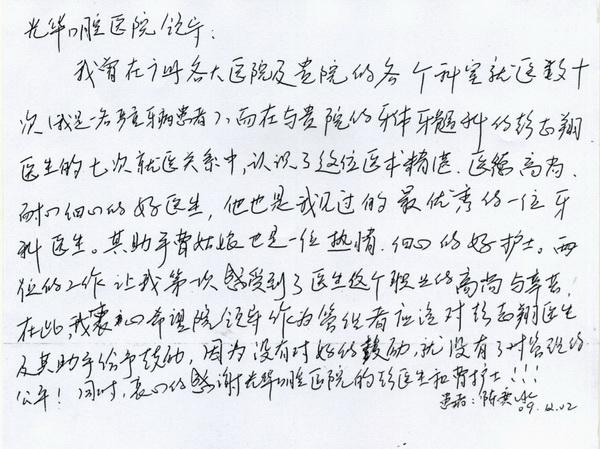 光华口腔医院领导:
我曾在广州各大医院及贵院的各个科室就医数十
次(我是一名严重牙病患者),而在与贵院的牙体牙髓科的彭志翔
医生的七次就医关系中,认识了这位医术精湛、医德高尚、
耐心细心的好医生,他也是我见过的最优秀的一位牙
科医生。其助手曹姑娘也是一位热情、细心的好护士。两
位的工作让我第一次感受到了医生这个职业的高尚与辛苦,
在此,我衷心希望院领导作为管理者应该对彭志翔医生
及其助手给予鼓励,因为没有对好的鼓励,就没有了对管理的
公平!同时,衷心的感谢光华口腔医院的彭医生和曹护士!!!
患者:陈 09.12.02